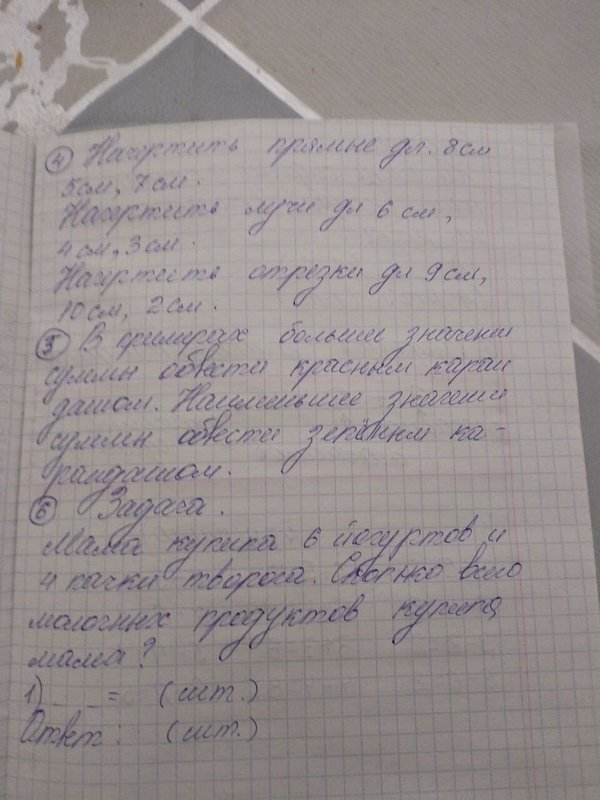 ④ Начертить прямые дл. 8 см
5 см, 7 см.
Начертить лучи дл 6 см,
4 см, 3 см.
Начертить отрезки дл 9 см,
10 см, 2 см.
⑤ В примерах большие значени
суммы обвести красным каран
дашом. Наименьшее значени
суммы обвести зелёным ка-
рандашом.
⑥ Задача.
Мама купила 6 йогуртов и
4 пачки творога. Сколько всего
молочных продуктов купила
мама?
1) _ _ = (шт.)
Ответ: (шт.)